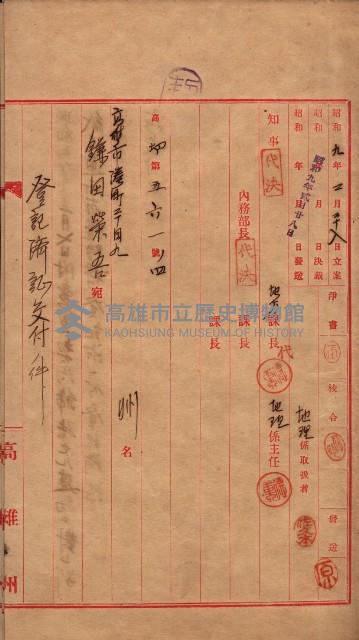 昭和九年二月二十八日立案
昭和 年 月 日決裁
昭和九年貳月廿八日
昭和 年 月 日發送
淨書
校合
發送
知事 代決
內務部長 代決
地方課長 代
課長
課長
地理係主任
地理係取扱者
原
高 地第五六一號ノ四
州名
高雄市
鎌田榮吾 宛
登記濟証交付ノ件
高雄州
高雄市立歷史博物館
KAOHSIUNG MUSEUM OF HISTORY